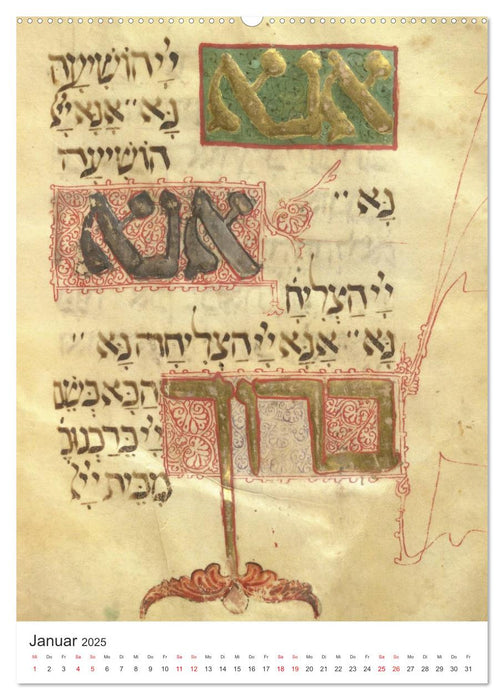 אנא יְיָ הוֹשִׁיעָה
נָא״ אָנָא יְיָ
הוֹשִׁיעָה
נָא״
אנא
יְיָ הַצְלִיחָ
נָא״ אָנָא יְיָ הַצְלִיחָה נָא״
ברוך הַבָּא בְּשֵׁם
יְיָ בֵּרַכְנוּכֶ
מִבֵּית יְיָ
Januar 2025
Mi Do Fr Sa So Mo Di Mi Do Fr Sa So Mo Di Mi Do Fr Sa So Mo Di Mi Do Fr Sa So Mo Di Mi Do Fr
1 2 3 4 5 6 7 8 9 10 11 12 13 14 15 16 17 18 19 20 21 22 23 24 25 26 27 28 29 30 31